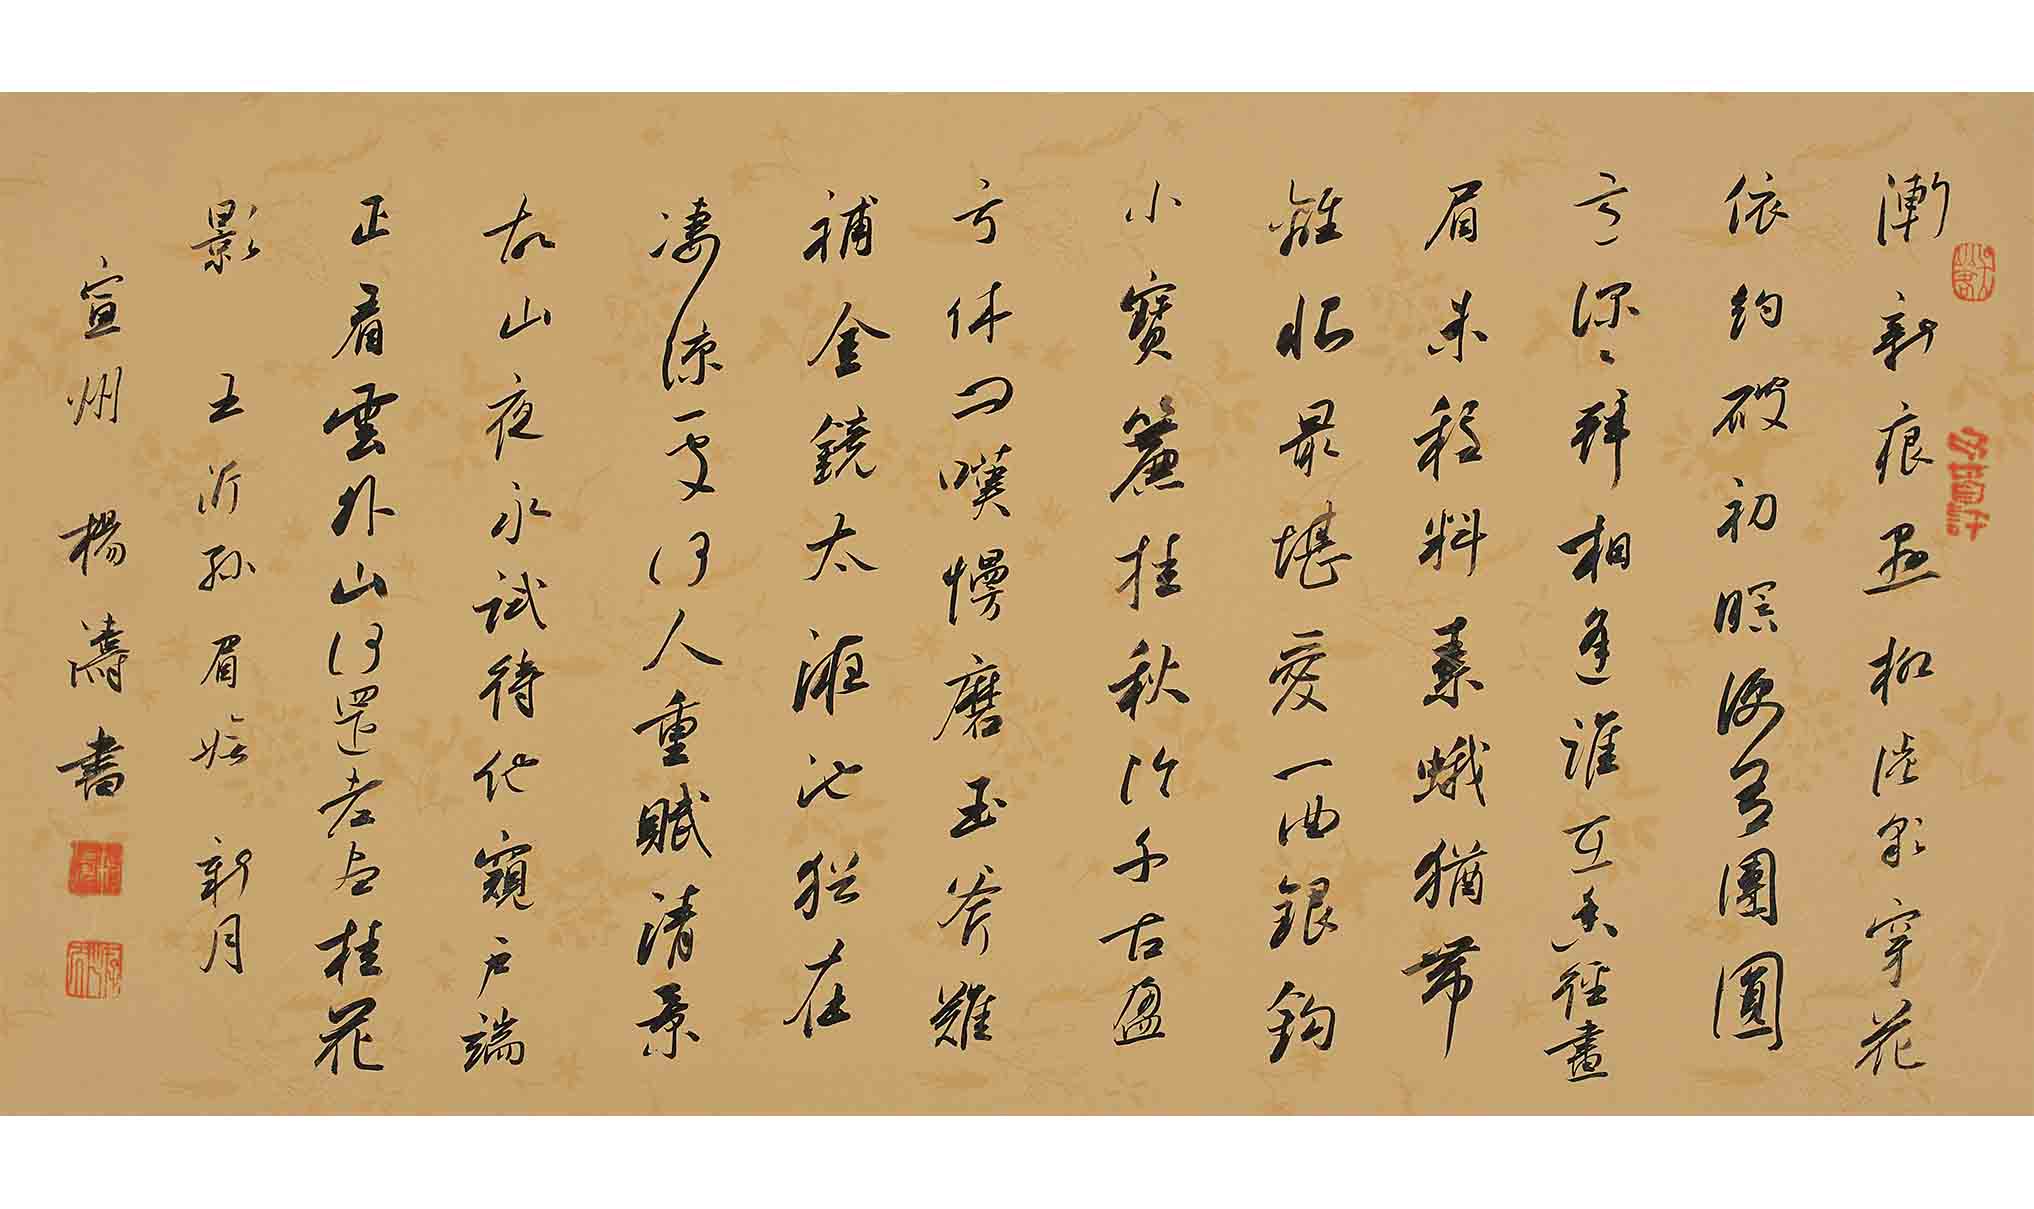 漸新痕懸柳淡彩穿花
依約破初暝便有團圓
意深〻拜相逢誰在香徑畫
眉未穩料素蛾猶帶
離恨最堪愛一曲銀鈎
小寶簾挂秋冷千古盈
亏休問嘆慢磨玉斧難
補金鏡太液池猶在
凄涼處何人重賦清景
故山夜永試待他窺户端
正看雲外山河還老盡桂花
影 王沂孫 眉嫵 新月
宣州 楊濤書